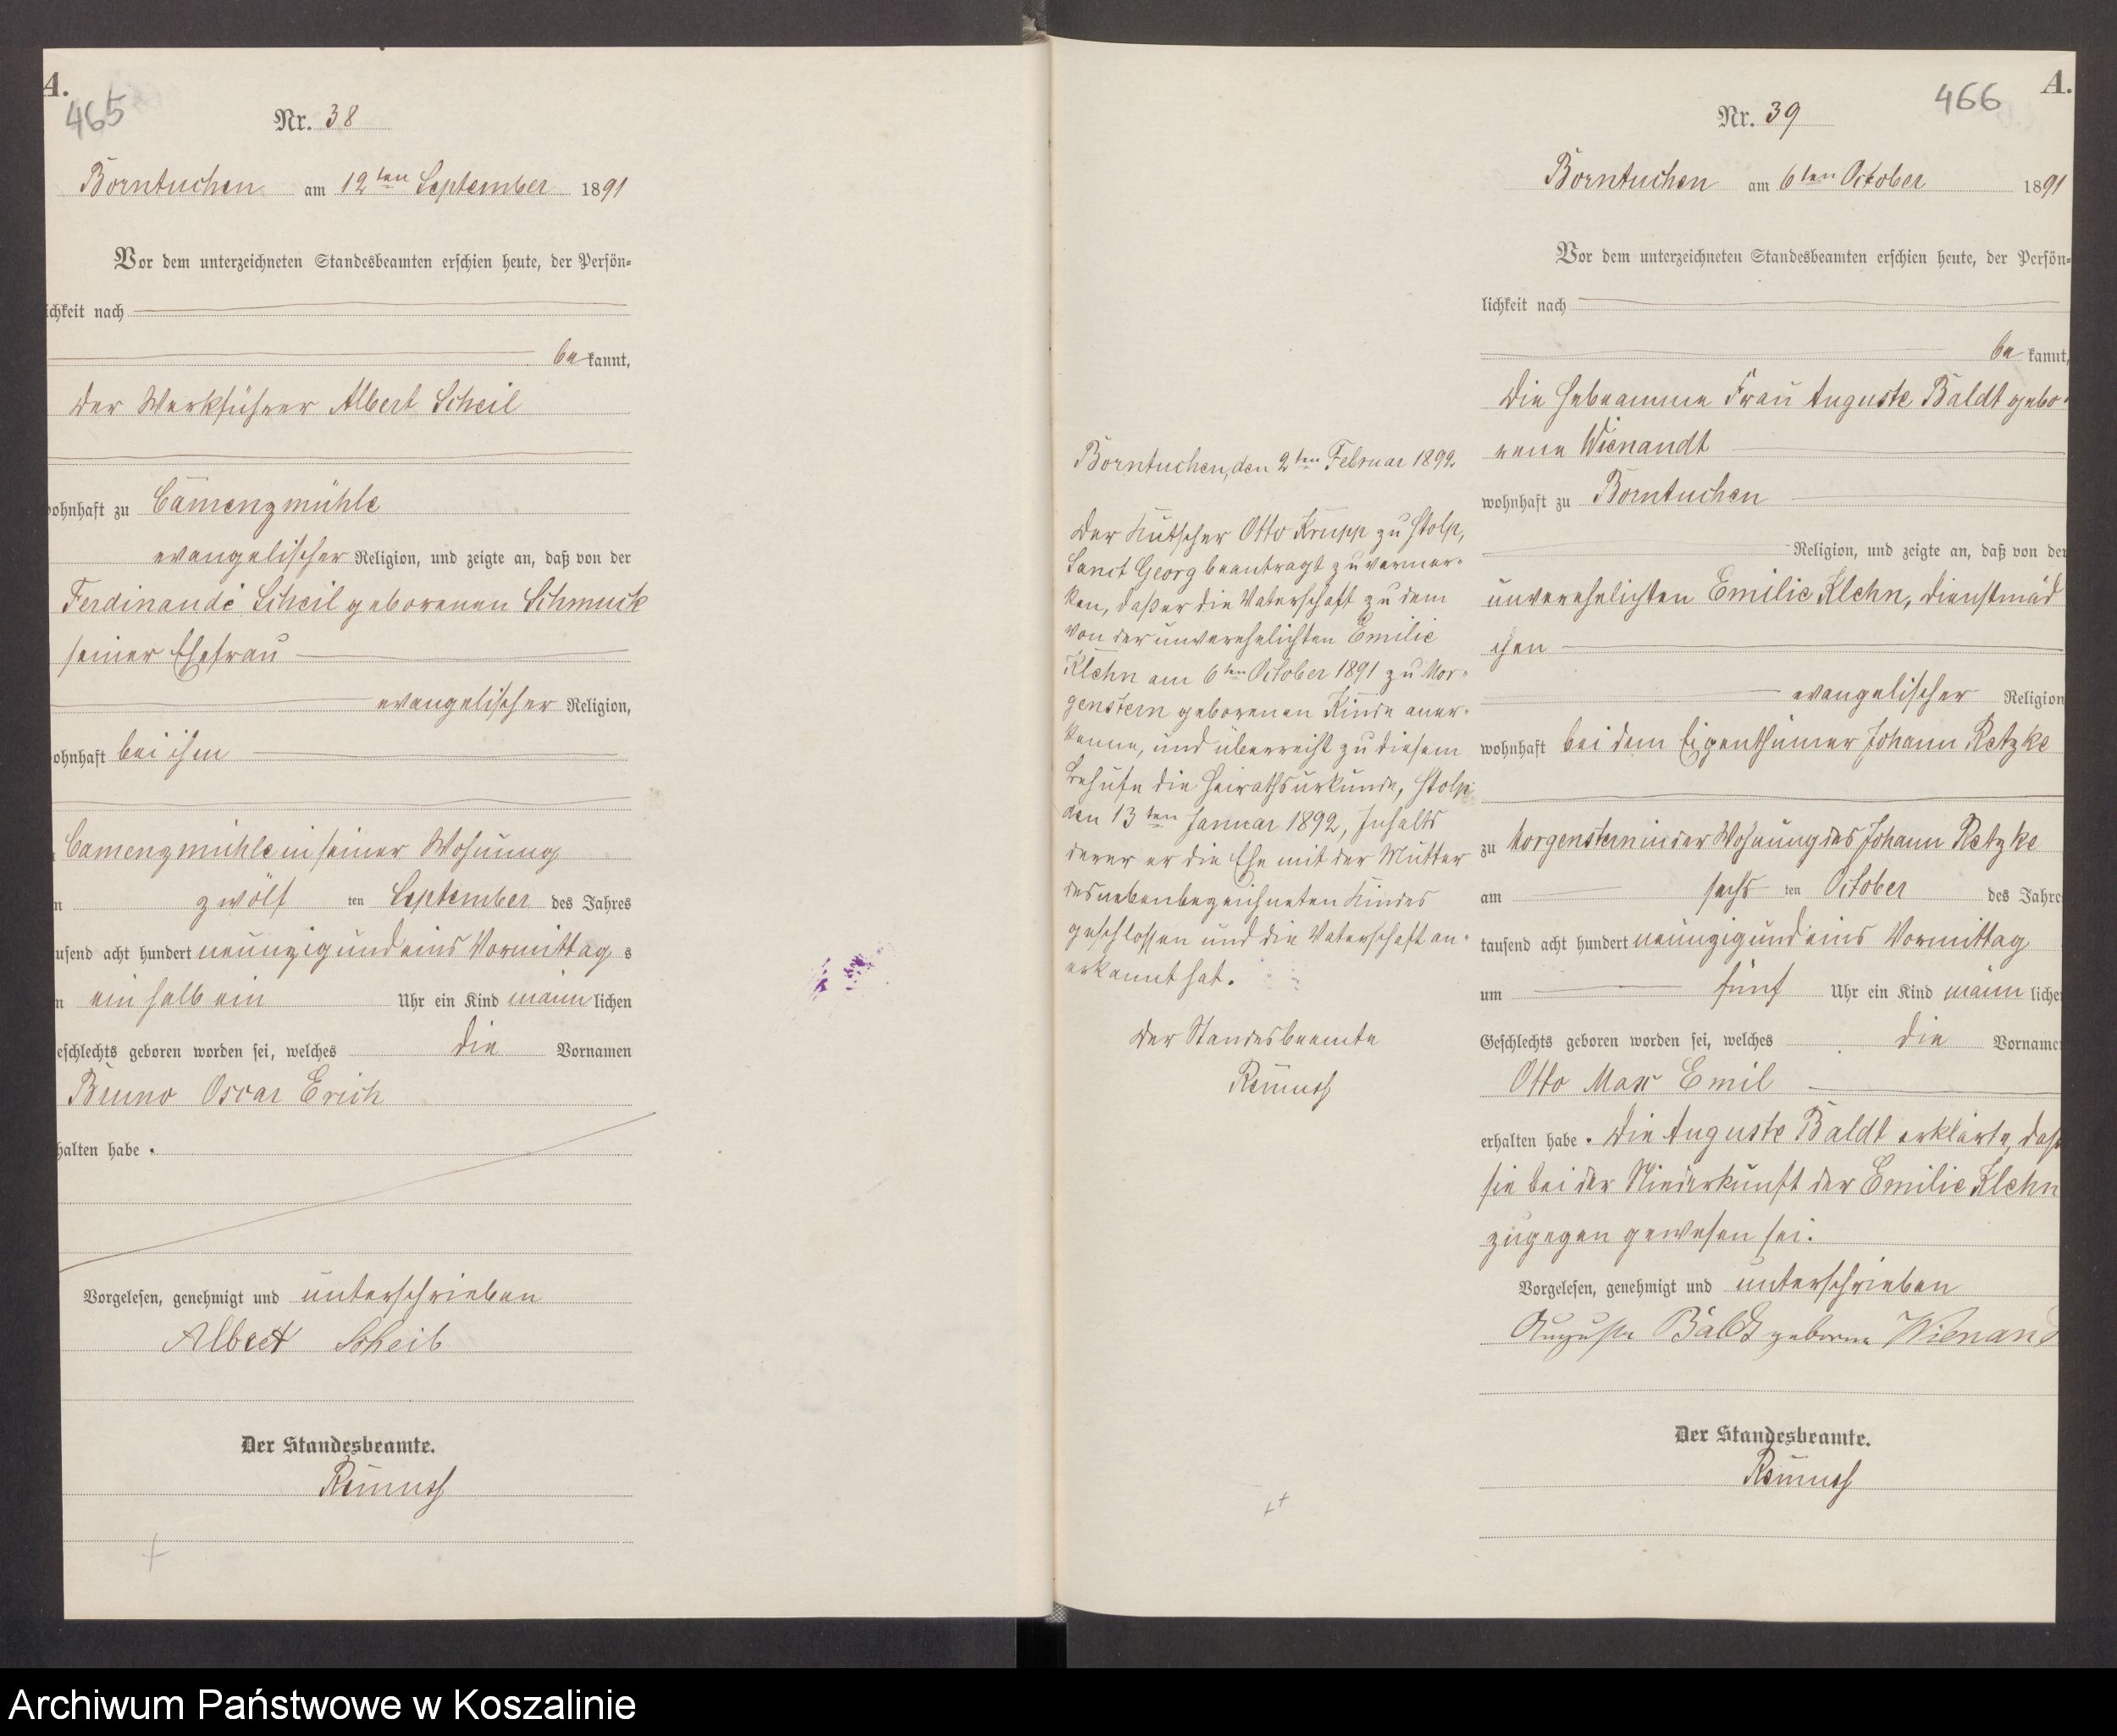 A.
465
Nr. 38
Borntuchen am 12ten September 1891
Vor dem unterzeichneten Standesbeamten erschien heute, der Persön-
ichkeit nach
bekannt,
der Werkführer Albert Scheil
ohnhaft zu Camenzmühle
evangelischer Religion, und zeigte an, daß von der
Ferdinande Scheil geborenen Schmuck
seiner Ehefrau
evangelischer Religion,
ohnhaft bei ihm
Camenzmühle in seiner Wohnung
zwölf ten September des Jahres
usend acht hundert neunzig und eins Vormittag s
n ein halb ein Uhr ein Kind männlichen
eschlechts geboren worden sei, welches die Vornamen
Bruno Oscar Erich
halten habe.
Vorgelesen, genehmigt und unterschrieben
Albert Scheil
Der Standesbeamte.
A.
466
Nr. 39
Borntuchen am 6ten October 1891
Vor dem unterzeichneten Standesbeamten erschien heute, der Persön-
lichkeit nach
bekannt,
die Hebeamme Frau Auguste Baldt gebo-
rene Wienandt
wohnhaft zu Borntuchen
Religion, und zeigte an, daß von der
unverehelichten Emilie Klehn, Dienstmäd
chen
evangelischer Religion
wohnhaft bei dem Eigenthümer Johann Retzke
zu Morgenstern in der Wohnung des Johann Retzke
am sechs ten October des Jahre
tausend acht hundert neunzig und eins Vormittag
um fünf Uhr ein Kind männliche
Geschlechts geboren worden sei, welches die Vorname
Otto Max Emil
erhalten habe. Die Auguste Baldt erklärte, daß
sie bei der Niederkunft der Emilie Klehn
zugegen gewesen sei.
Vorgelesen, genehmigt und unterschrieben
Auguste Baldt geborne Wienand
Der Standesbeamte.
Borntuchen, den 2ten Februar 1892.
Der Kutscher Otto Krupp zu Stolp,
Sanct Georg beantragt zu vermer-
ken, daß er die Vaterschaft zu dem
von der unverehelichten Emilie
Klehn am 6ten October 1891 zu Mor-
genstern geborenen Kinde aner-
kenne, und überreicht zu diesem
Behufe die Heirathsurkunde, Stolp
den 13ten Januar 1892, Inhalts
derer er die Ehe mit der Mutter
des nebenbezeichneten Kindes
geschlossen und die Vaterschaft an-
erkannt hat.
Der Standesbeamte
Archiwum Państwowe w Koszalinie